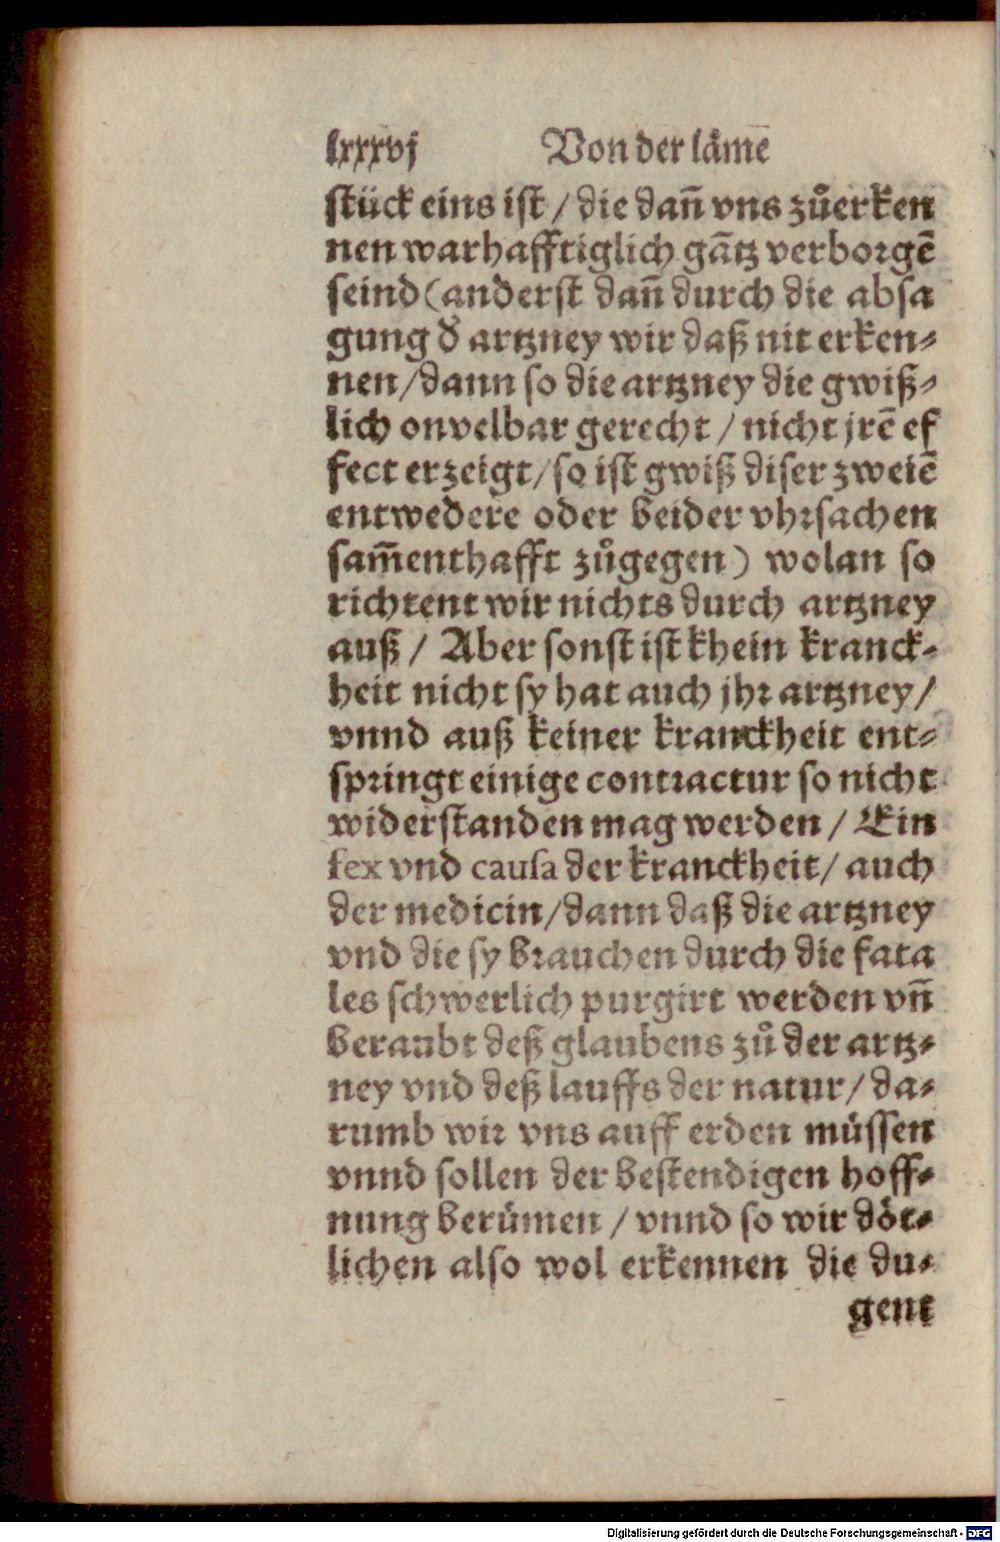 lxxxvj Von der låme
stück eins ist / die dañ vns zůerken
nen warhafftiglich gātz verborgē
seind (anderst dañ durch die absa
gung d̕ artzney wir daß nit erken⸗
nen / dann so die artzney die gwiß⸗
lich onvelbar gerecht / nicht jrē ef
fect erzeigt / so ist gwiß diser zweiē
entwedere oder beider vhrsachen
sam̄enthafft zůgegen) wolan so
richtent wir nichts durch artzney
auß / Aber sonst ist khein kranck⸗
heit nicht sy hat auch jhr artzney /
vnnd auß keiner kranckheit ent⸗
springt einige contractur so nicht
widerstanden mag werden / Ein
fex vnd causa der kranckheit / auch
der medicin / dann daß die artzney
vnd die sy brauchen durch die fata
les schwerlich purgirt werden vñ
beraubt deß glaubens zů der artz⸗
ney vnd deß lauffs der natur / da⸗
rumb wir vns auff erden müssen
vnnd sollen der bestendigen hoff⸗
nung berümen / vnnd so wir döt⸗
lichen also wol erkennen die du⸗
gent
Digitalisierung gefördert durch die Deutsche Forschungsgemeinschaft - DFG